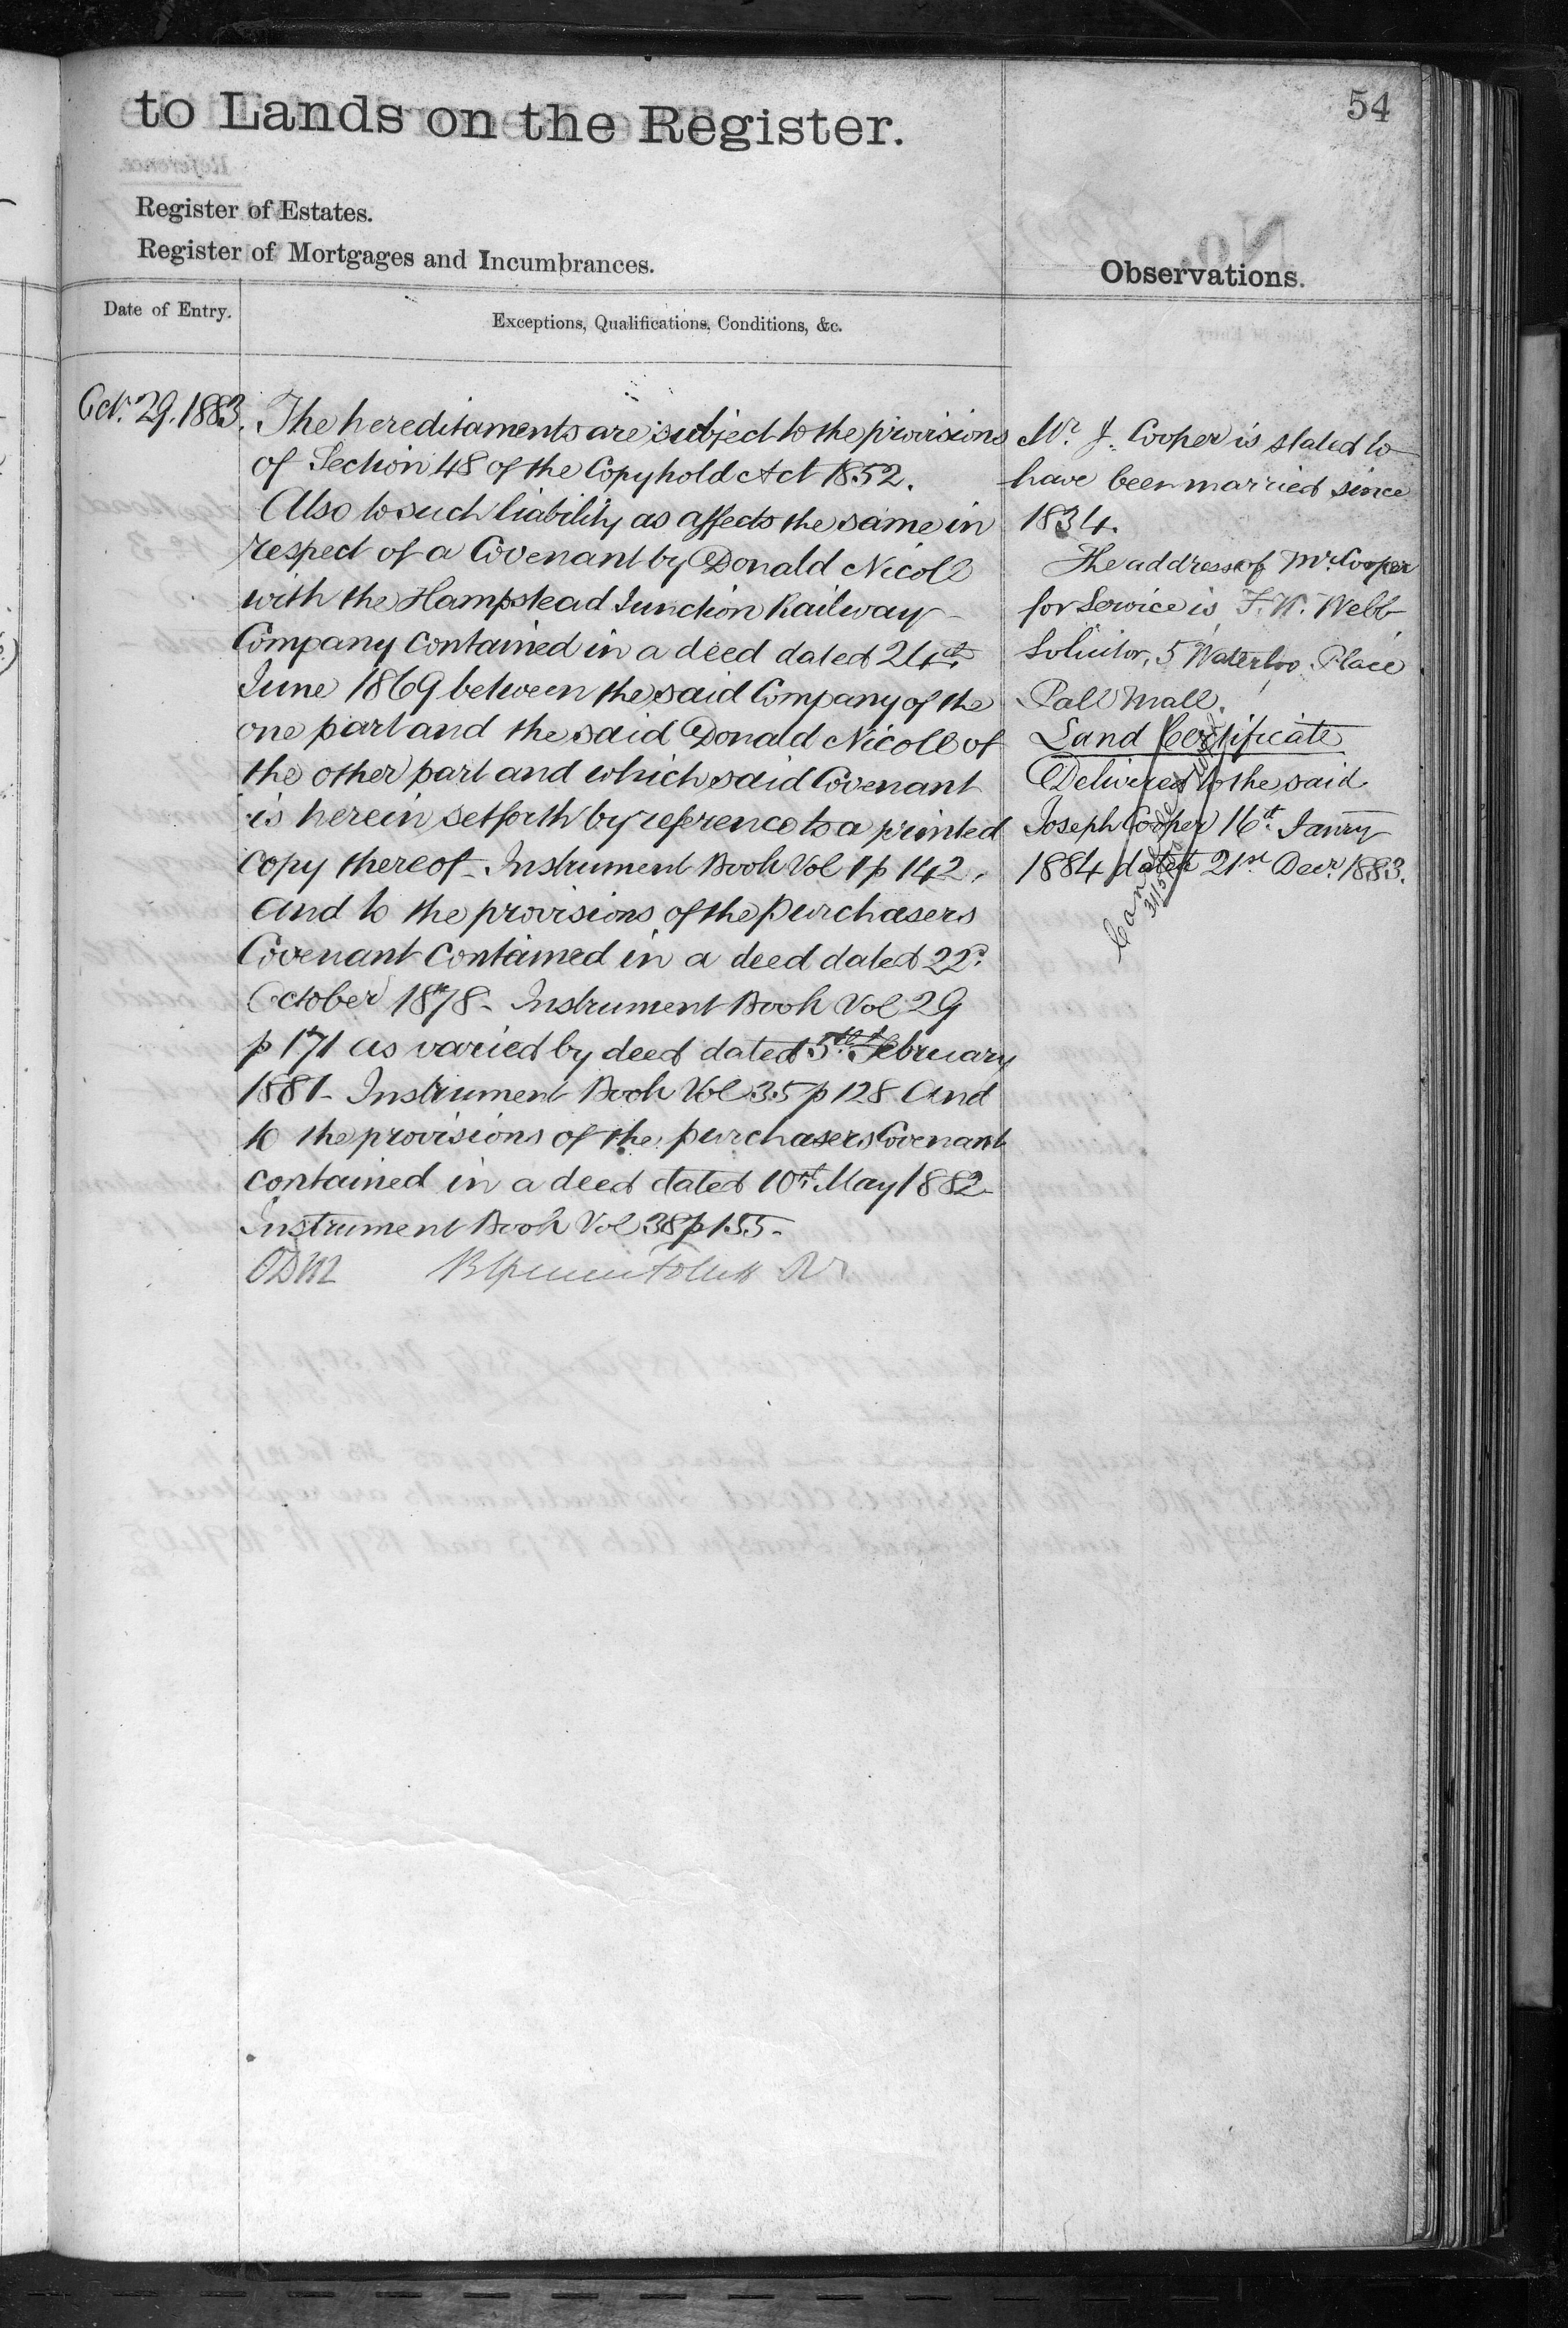 54
to Lands on the Register.
Register of Estates.
Register of Mortgages and Incumbrances.
Observations.
Date of Entry.
Exceptions, Qualifications, Conditions, &c.
Oct. 29. 1883.
The hereditaments are subject to the provisions
of Section 48 of the Copyhold Act 1852.
Also to such liability as affects the same in
respect of a Covenant by Donald Nicoll
with the Hampstead Junction Railway
Company contained in a deed dated 24th
June 1869 between the said Company of the
one part and the said Donald Nicoll of
the other part and which said Covenant
is herein setforth by reference to a printed
copy thereof - Instrument Book Vol 1 p 142,
And to the provisions of the purchasers
Covenant contained in a deed dated 22d.
October 1878 - Instrument Book Vol 29
p 171 as varied by deed dated 5th February
1881 - Instrument Book Vol 35 p 128 And
to the provisions of the purchasers Covenant
contained in a deed dated 10th May 1882
Instrument Book Vol 38 p 155 -
Mr. J. Cooper is stated to
have been married since
1834.
The address of Mr. Cooper
for Service is F. W. Webb
Solicitor, 5 Waterloo Place
Pall Mall.
Land Certificate
Delivered to the said
Joseph Cooper 16th. Janry
1884 dated 21st Decr. 1883.